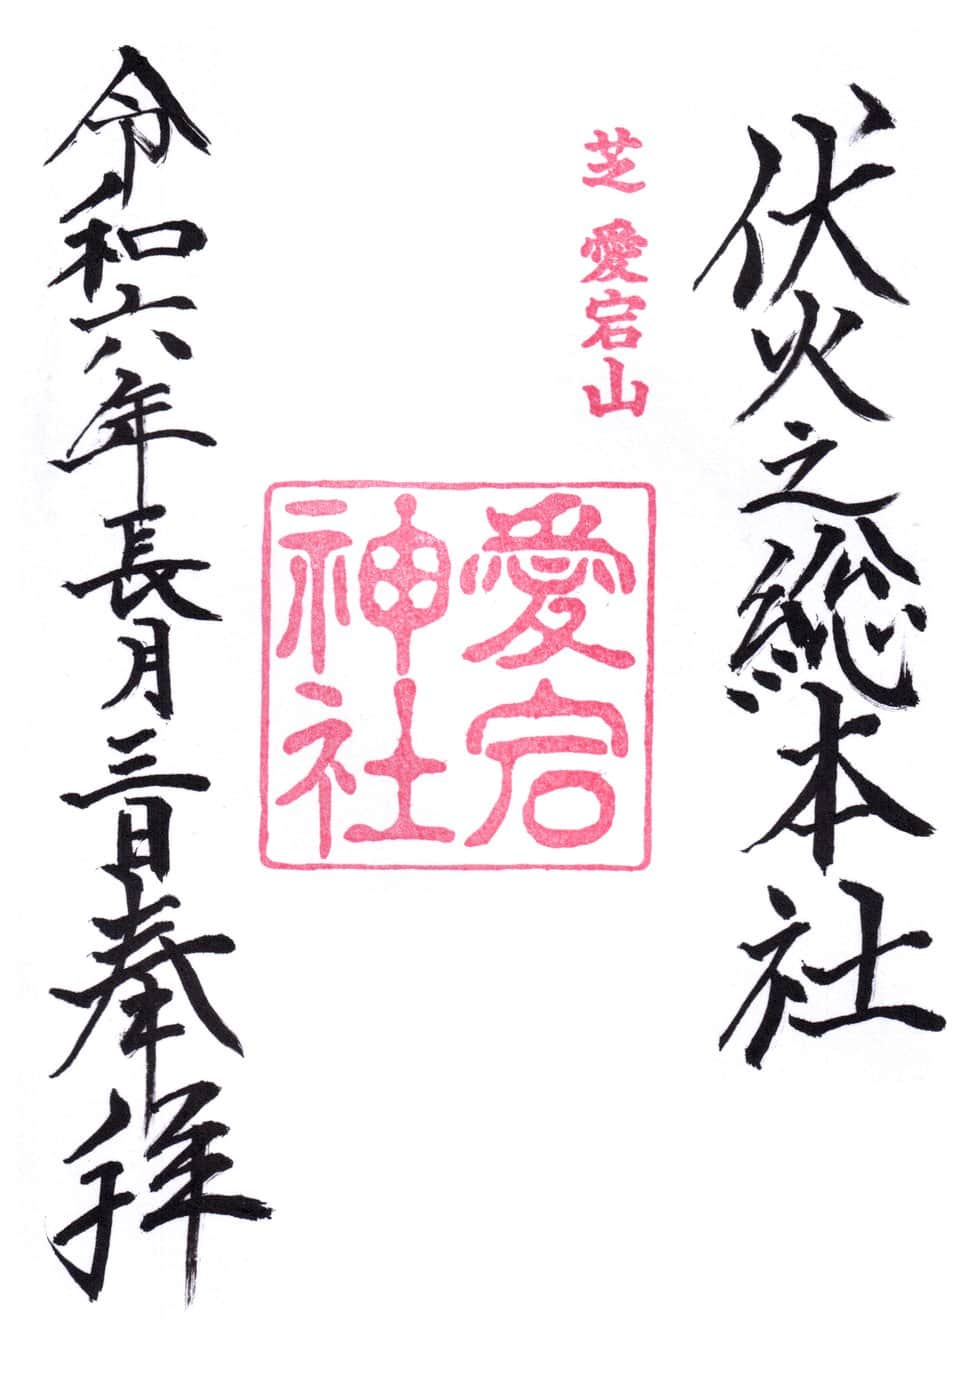 伏火之総本社
芝 愛宕山
愛宕
神社
令和六年長月三日奉拝